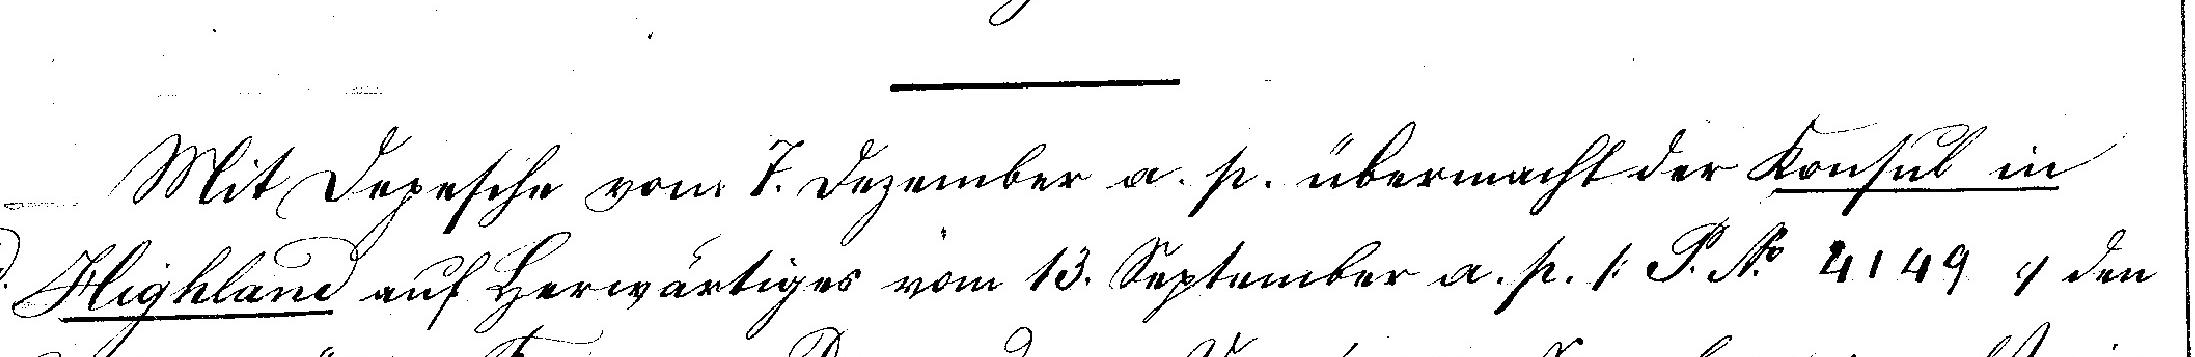 Mit Depesche vom 7. Dezember a. p. übermacht der Konsul in
Highland auf Herwärtiges vom 13. September a. p. /: P. No 4149 :/ den